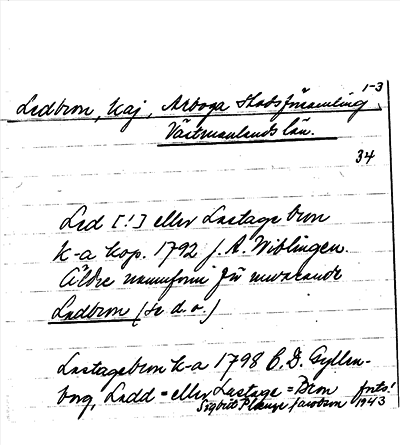 1-3
Ladbron, kaj, Arboga Stadsförsamling,
Västmanlands län.
34
Lad [!] eller Lastage bron
k-a kop. 1792 f. A. Wiblingen.
Äldre namnform för nuvarande
Ladbron (se d.o.)
Lastagebron k-a 1798 C. D. Gyllen-
borg, Ladd = eller Lastage = Bron forts!
Sigbrit Plænge Jacobson 1943